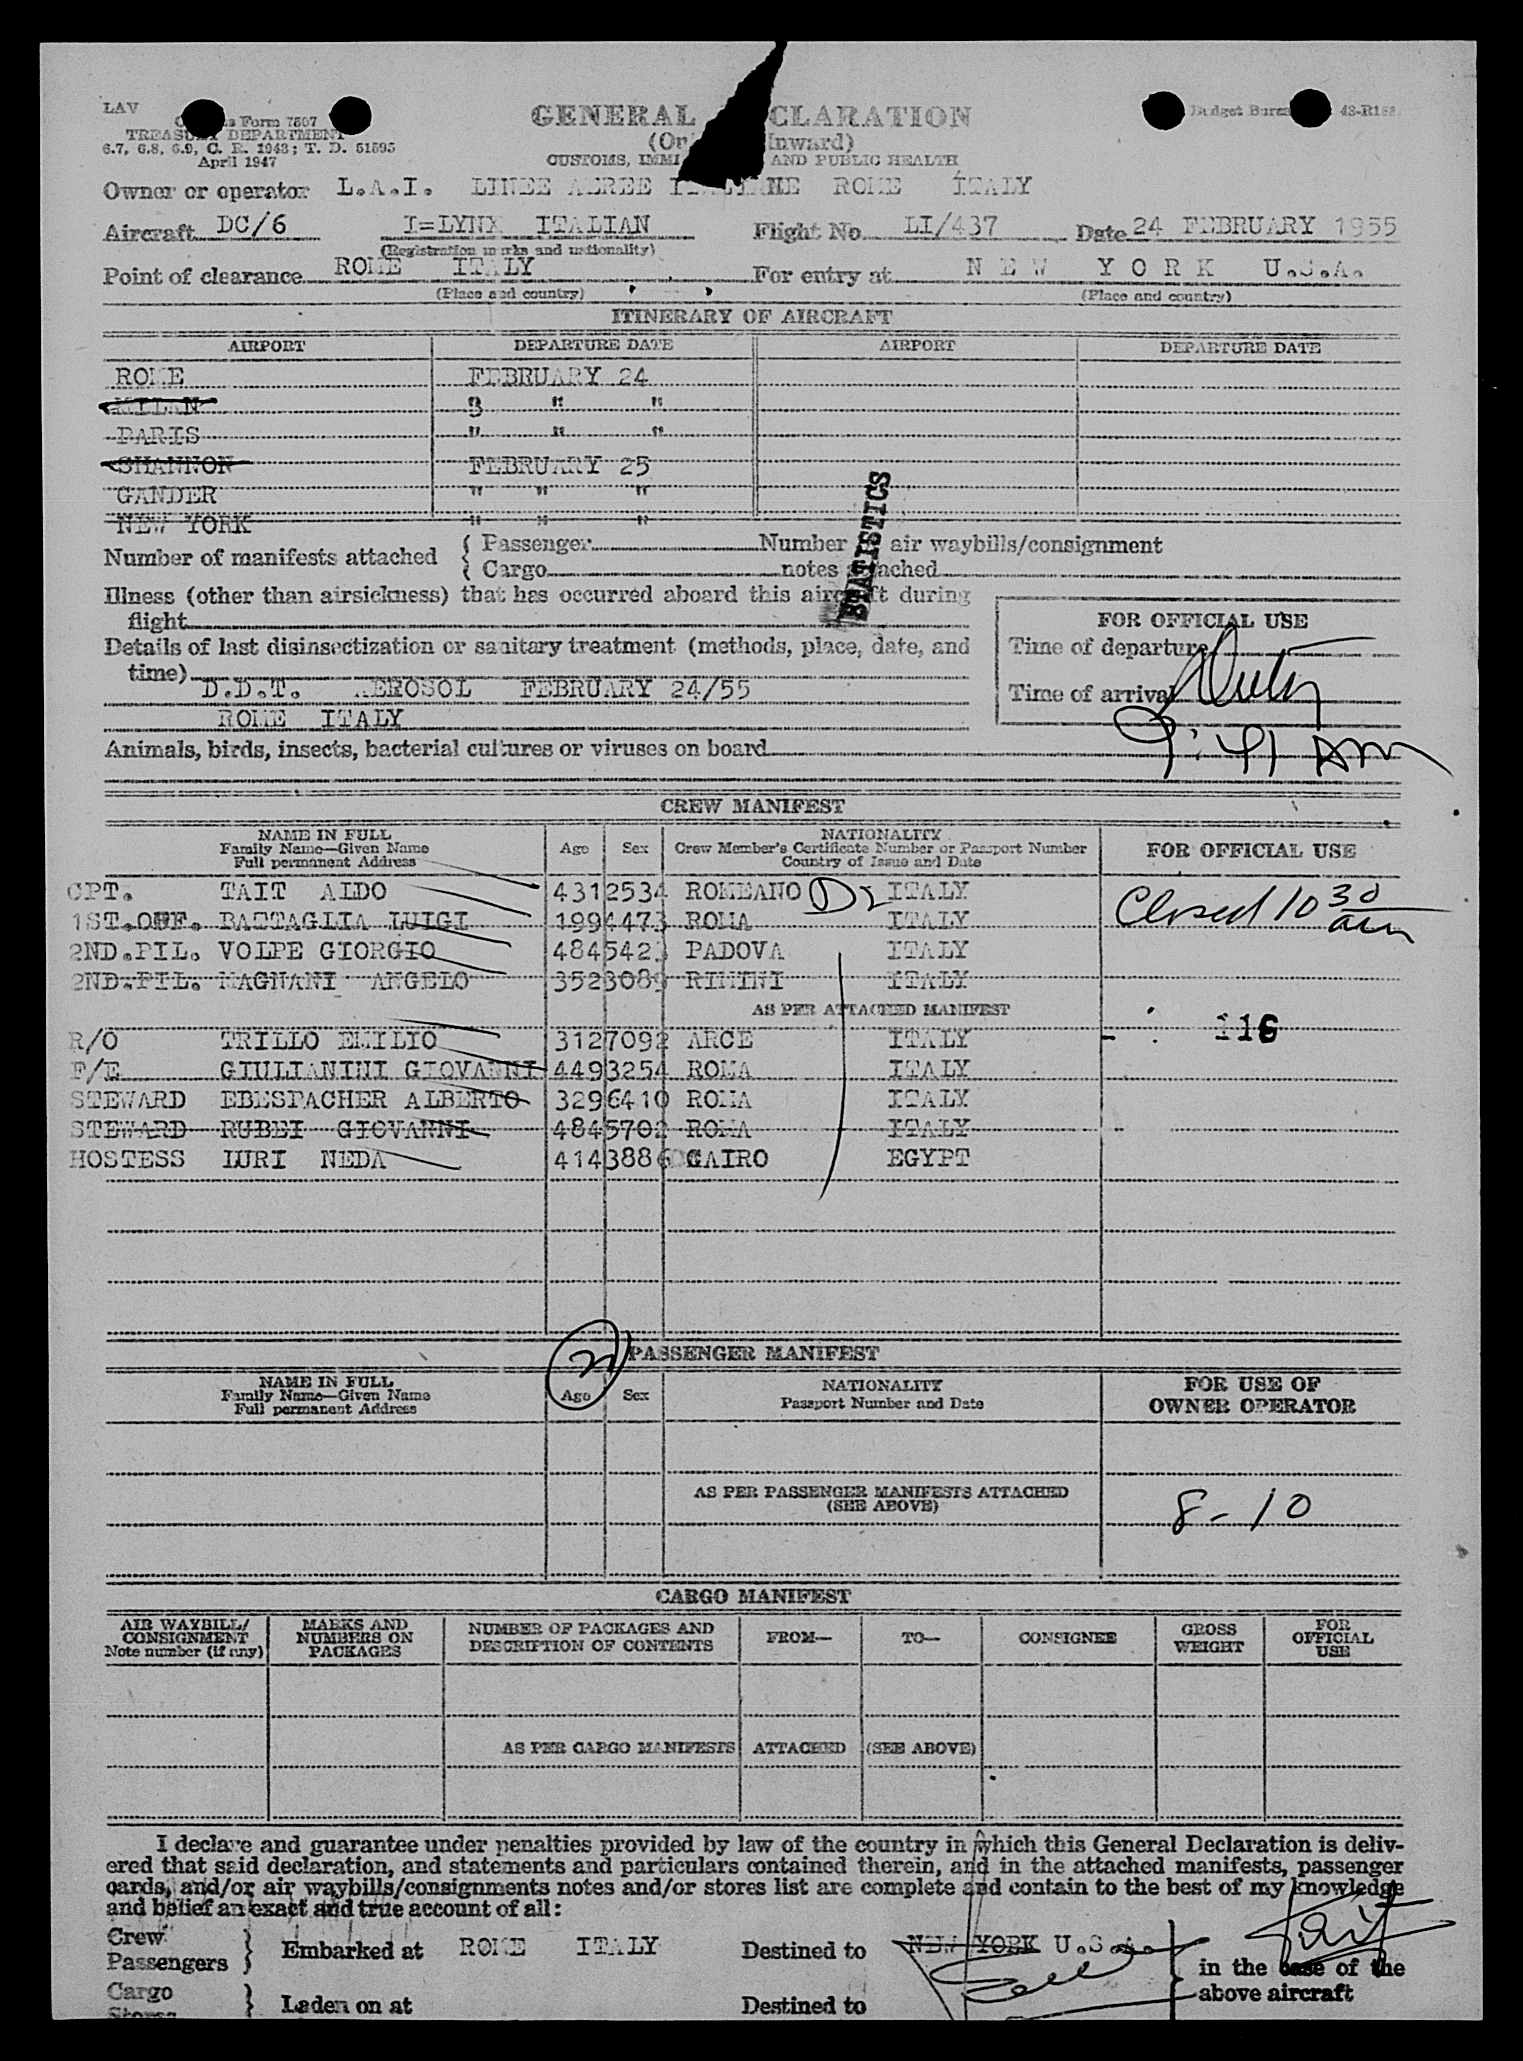 LAV
Form 7507
TREASURY DEPARTMENT
6.7, 6.8, 6.9, C. R. 1943; T. D. 51595
April 1947
GENERAL CLARATION
(Or nward)
CUSTOMS, IMMI AND PUBLIC HEALTH
Budget Bureau 43-R188
Owner or operator L.A.I. LINEE AEREE ITALIANE ROME ITALY
Aircraft DC/6 I=LYNX ITALIAN Flight No. LI/437 Date 24 FEBRUARY 1955
(Registration marks and nationality)
Point of clearance ROME ITALY For entry at NEW YORK U.S.A.
(Place and country) (Place and country)
ITINERARY OF AIRCRAFT
AIRPORT DEPARTURE DATE AIRPORT DEPARTURE DATE
ROME FEBRUARY 24
MILAN " " "
PARIS " " "
SHANNON FEBRUARY 25
GANDER " " "
NEW YORK " " "
STATISTICS
Number of manifests attached { Passenger Number air waybills/consignment
{ Cargo notes attached
Illness (other than airsickness) that has occurred aboard this aircraft during
flight
Details of last disinsectization or sanitary treatment (methods, place, date, and
time)
D.D.T. AEROSOL FEBRUARY 24/55
ROME ITALY
FOR OFFICIAL USE
Time of departure
Time of arrival
9:41 AM
Animals, birds, insects, bacterial cultures or viruses on board
CREW MANIFEST
NAME IN FULL
Family Name—Given Name
Full permanent Address
Age Sex
NATIONALITY
Crew Member's Certificate Number or Passport Number
Country of Issue and Date
FOR OFFICIAL USE
CPT. TAIT ALDO 4312534 ROMEANO ITALY
Closed 10 30 am
1ST.OFF. BATTAGLIA LUIGI 1994473 ROMA ITALY
2ND.PIL. VOLPE GIORGIO 4845423 PADOVA ITALY
2ND.PIL. MAGNANI ANGELO 3523089 RIMINI ITALY
AS PER ATTACHED MANIFEST
116
R/O TRILLO EMILIO 3127092 ARCE ITALY
F/E GIULIANINI GIOVANNI 4493254 ROMA ITALY
STEWARD EBESPACHER ALBERTO 3296410 ROMA ITALY
STEWARD RUBEI GIOVANNI 4845702 ROMA ITALY
HOSTESS LURI NEDA 4143886 CAIRO EGYPT
PASSENGER MANIFEST
NAME IN FULL
Family Name—Given Name
Full permanent Address
Age Sex
NATIONALITY
Passport Number and Date
FOR USE OF
OWNER OPERATOR
AS PER PASSENGER MANIFESTS ATTACHED
(SEE ABOVE)
8-10
CARGO MANIFEST
AIR WAYBILL/
CONSIGNMENT
Note number (if any)
MARKS AND
NUMBERS ON
PACKAGES
NUMBER OF PACKAGES AND
DESCRIPTION OF CONTENTS
FROM— TO— CONSIGNEE
GROSS
WEIGHT
FOR
OFFICIAL
USE
AS PER CARGO MANIFESTS ATTACHED (SEE ABOVE)
I declare and guarantee under penalties provided by law of the country in which this General Declaration is deliv-
ered that said declaration, and statements and particulars contained therein, and in the attached manifests, passenger
cards, and/or air waybills/consignments notes and/or stores list are complete and contain to the best of my knowledge
and belief an exact and true account of all:
Crew
Passengers } Embarked at ROME ITALY Destined to NEW YORK U.S.A.
Tait
in the case of the
above aircraft
Cargo
Stores } Laden on at Destined to